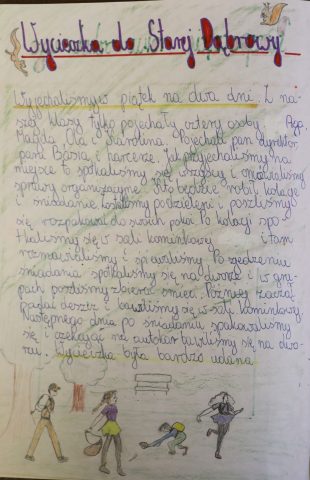 Wycieczka do Starej Dąbrowy
Wyjechaliśmy w piątek na dwa dni. Z na-
szej klasy tylko pojechały cztery osoby Aga
Magda Ola i Karolina. Pojechali pan dyrektor,
pani Basia i harcerze. Jak przyjechaliśmy na
miejsce to spotkaliśmy się i omawialiśmy
sprawy organizacyjne. Kto będzie robił kolację
i śniadanie zostaliśmy podzieleni i poszliśmy
się rozpakować do swoich pokoi. Po kolacji spo-
tkaliśmy się w sali kominkowej i tam
rozmawialiśmy i śpiewaliśmy. Po zjedzeniu
śniadania spotkaliśmy się na dworze i w gru-
pach poszliśmy zbierać śmieci. Później zaczął
padać deszcz i bawiliśmy się w sali kominkowej.
Następnego dnia po śniadaniu spakowaliśmy
się i czekając na autokar bawiliśmy się na dwo-
rze. Wycieczka była bardzo udana.